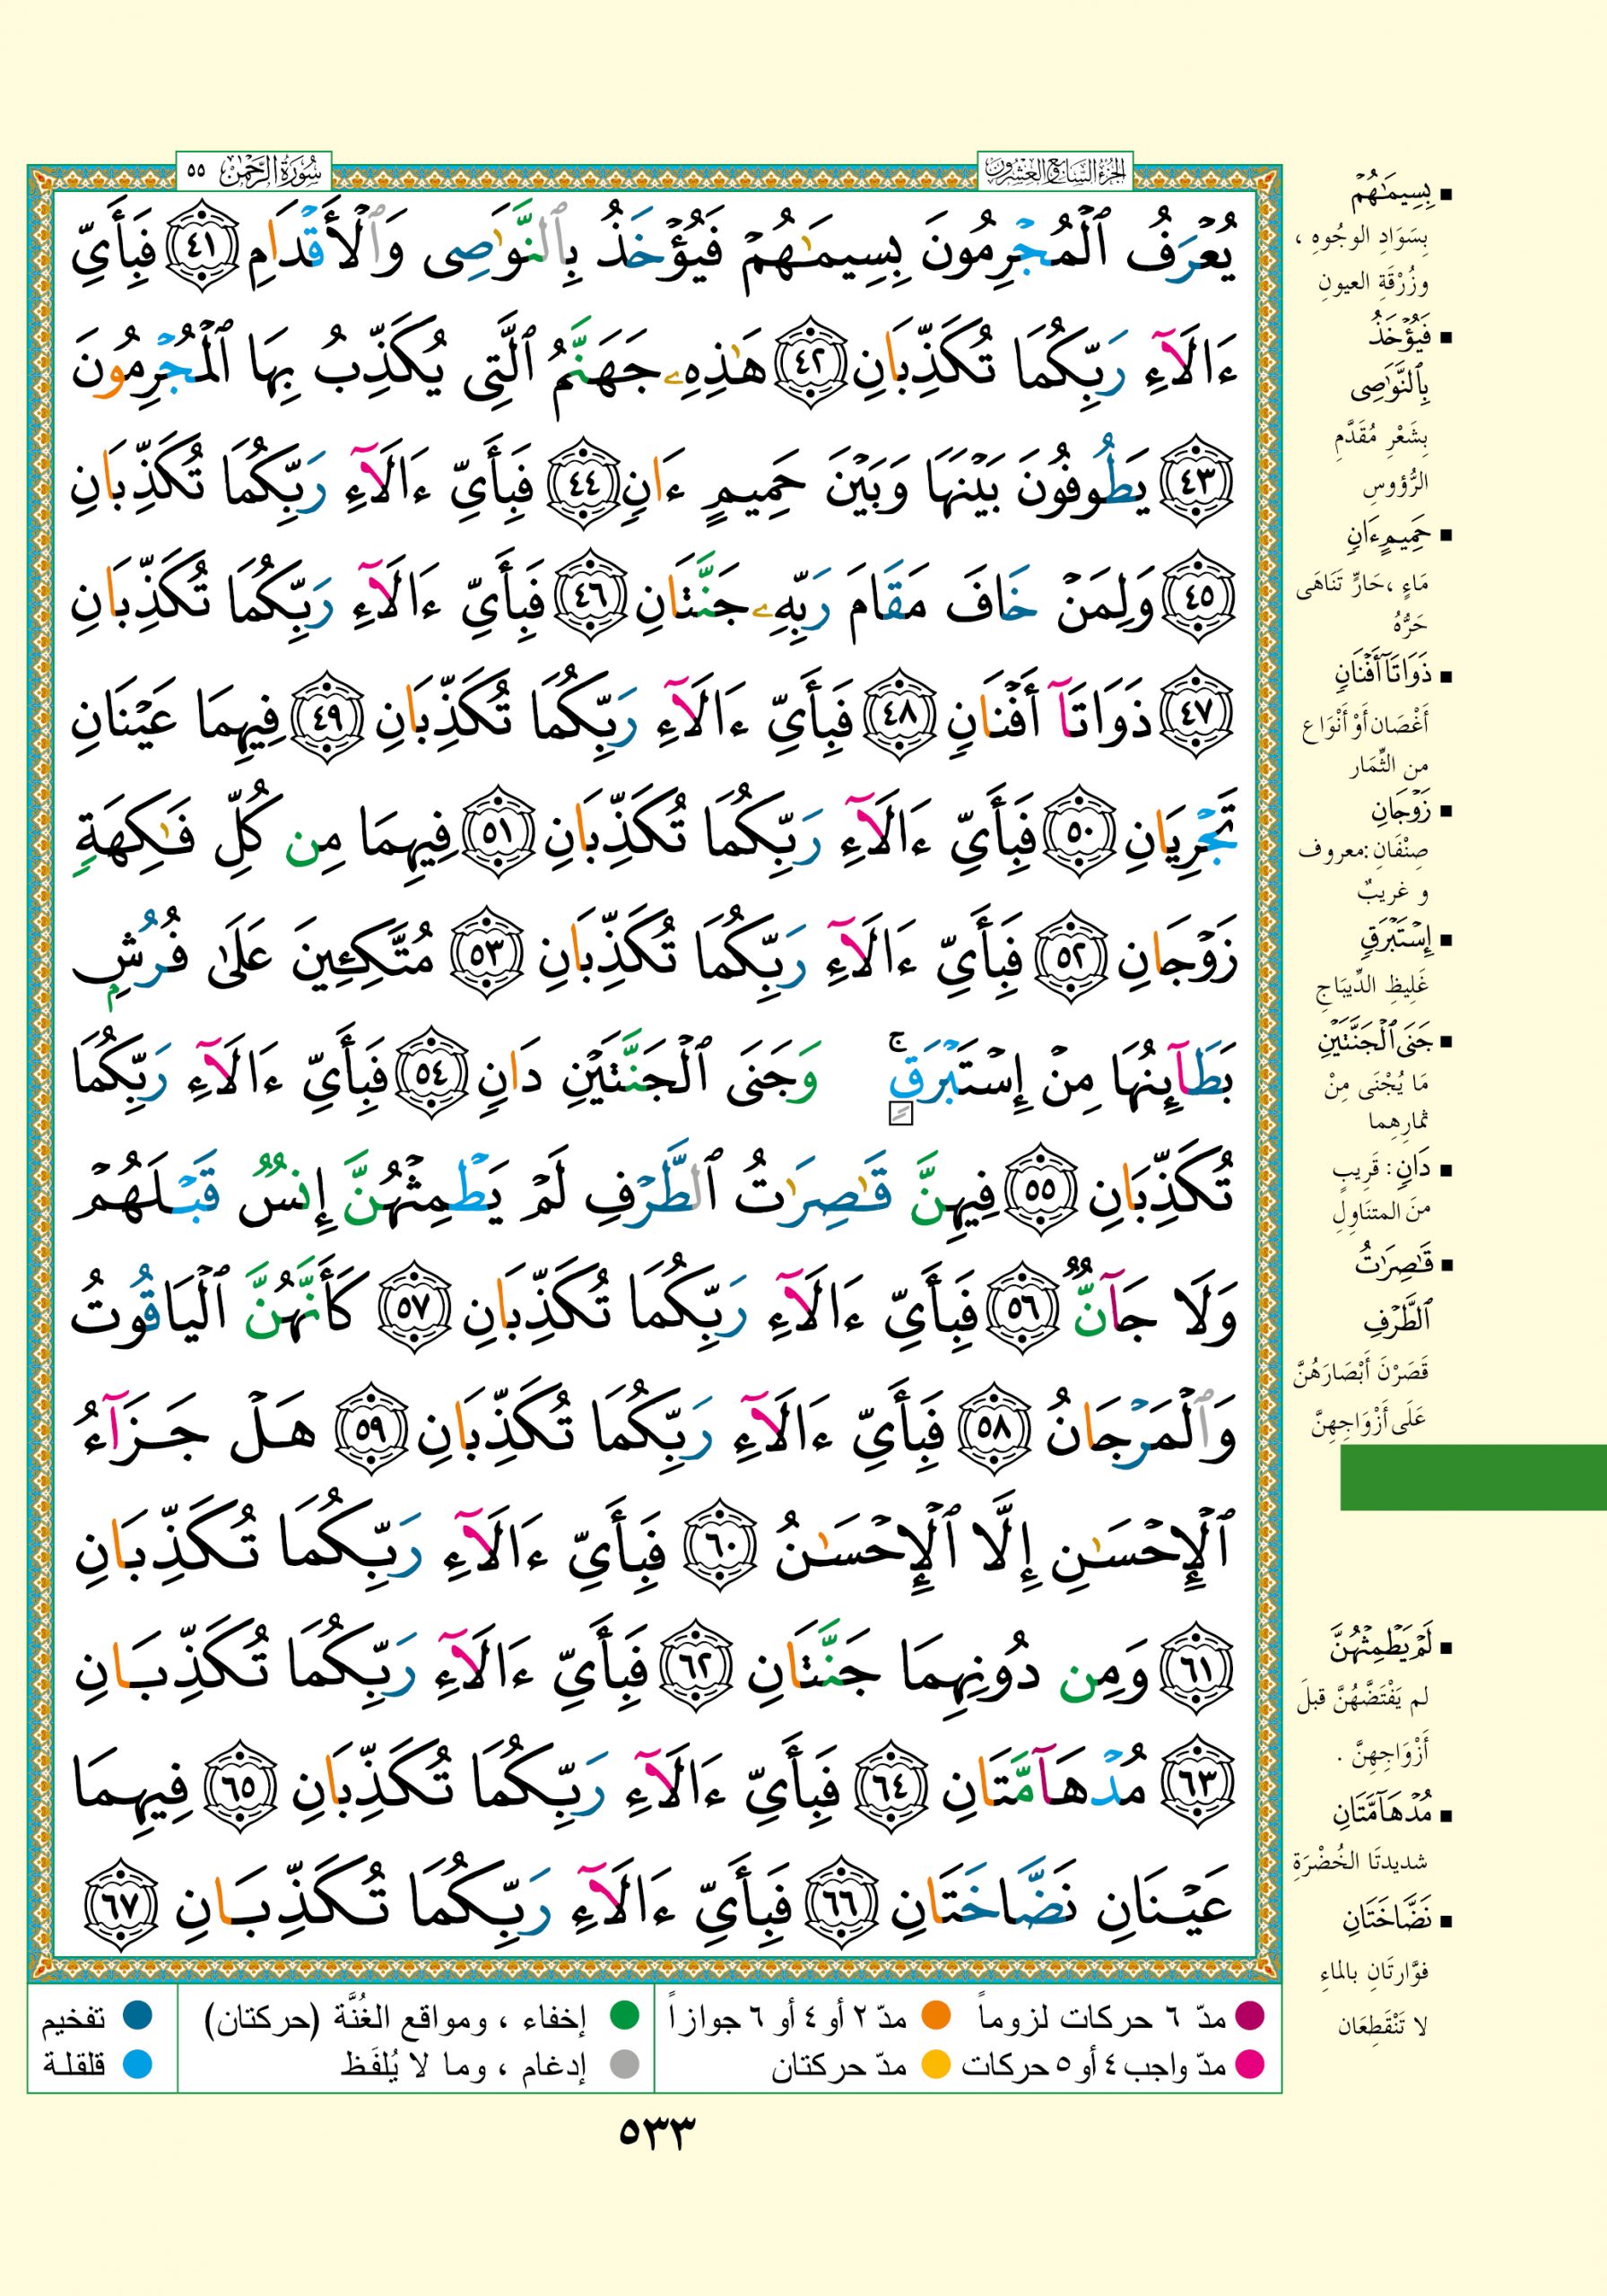 الجزء السابع والعشرون
سورة الرحمن ٥٥
يُعۡرَفُ ٱلۡمُجۡرِمُونَ بِسِيمَٰهُمۡ فَيُؤۡخَذُ بِٱلنَّوَٰصِى وَٱلۡأَقۡدَامِ ٤١ فَبِأَىِّ
ءَالَآءِ رَبِّكُمَا تُكَذِّبَانِ ٤٢ هَٰذِهِۦ جَهَنَّمُ ٱلَّتِى يُكَذِّبُ بِهَا ٱلۡمُجۡرِمُونَ
٤٣ يَطُوفُونَ بَيۡنَهَا وَبَيۡنَ حَمِيمٍ ءَانٍ ٤٤ فَبِأَىِّ ءَالَآءِ رَبِّكُمَا تُكَذِّبَانِ
٤٥ وَلِمَنۡ خَافَ مَقَامَ رَبِّهِۦ جَنَّتَانِ ٤٦ فَبِأَىِّ ءَالَآءِ رَبِّكُمَا تُكَذِّبَانِ
٤٧ ذَوَاتَآ أَفۡنَانٍ ٤٨ فَبِأَىِّ ءَالَآءِ رَبِّكُمَا تُكَذِّبَانِ ٤٩ فِيهِمَا عَيۡنَانِ
تَجۡرِيَانِ ٥٠ فَبِأَىِّ ءَالَآءِ رَبِّكُمَا تُكَذِّبَانِ ٥١ فِيهِمَا مِن كُلِّ فَٰكِهَةٍ
زَوۡجَانِ ٥٢ فَبِأَىِّ ءَالَآءِ رَبِّكُمَا تُكَذِّبَانِ ٥٣ مُتَّكِـِٔينَ عَلَىٰ فُرُشِۭ
بَطَآئِنُهَا مِنۡ إِسۡتَبۡرَقٖۚ وَجَنَى ٱلۡجَنَّتَيۡنِ دَانٍ ٥٤ فَبِأَىِّ ءَالَآءِ رَبِّكُمَا
تُكَذِّبَانِ ٥٥ فِيهِنَّ قَٰصِرَٰتُ ٱلطَّرۡفِ لَمۡ يَطۡمِثۡهُنَّ إِنسٌ قَبۡلَهُمۡ
وَلَا جَآنٌّ ٥٦ فَبِأَىِّ ءَالَآءِ رَبِّكُمَا تُكَذِّبَانِ ٥٧ كَأَنَّهُنَّ ٱلۡيَاقُوتُ
وَٱلۡمَرۡجَانُ ٥٨ فَبِأَىِّ ءَالَآءِ رَبِّكُمَا تُكَذِّبَانِ ٥٩ هَلۡ جَزَآءُ
ٱلۡإِحۡسَٰنِ إِلَّا ٱلۡإِحۡسَٰنُ ٦٠ فَبِأَىِّ ءَالَآءِ رَبِّكُمَا تُكَذِّبَانِ
٦١ وَمِن دُونِهِمَا جَنَّتَانِ ٦٢ فَبِأَىِّ ءَالَآءِ رَبِّكُمَا تُكَذِّبَانِ
٦٣ مُدۡهَآمَّتَانِ ٦٤ فَبِأَىِّ ءَالَآءِ رَبِّكُمَا تُكَذِّبَانِ ٦٥ فِيهِمَا
عَيۡنَانِ نَضَّاخَتَانِ ٦٦ فَبِأَىِّ ءَالَآءِ رَبِّكُمَا تُكَذِّبَانِ ٦٧
▪ بِسِيمَٰهُمۡ
بِسَوَادِ الوجُوهِ ،
وزُرْقَةِ العيونِ
▪ فَيُؤۡخَذُ
بِٱلنَّوَٰصِى
بِشَعْرِ مُقَدَّمِ
الرُّؤوسِ
▪ حَمِيمٍ ءَانٍ
مَاءٍ ،حَارٍّ تَنَاهَى
حَرُّهُ
▪ ذَوَاتَآ أَفۡنَانٍ
أَغْصَان أَوْ أَنْوَاع
من الثِّمَار
▪ زَوۡجَانِ
صِنْفَانِ :معروف
و غريبٌ
▪ إِسۡتَبۡرَقٍ
غَلِيظِ الدِّيبَاجِ
▪ جَنَى ٱلۡجَنَّتَيۡنِ
مَا يُجْنَى مِنْ
ثمارِهِما
▪ دَانٍ : قَرِيبٍ
مَن المتنَاوِلِ
▪ قَٰصِرَٰتُ
ٱلطَّرۡفِ
قَصَرْنَ أَبْصَارَهُنَّ
عَلَى أَزْوَاجِهِنَّ
▪ لَمۡ يَطۡمِثۡهُنَّ
لم يَفْتَضَّهُنَّ قبلَ
أَزْوَاجِهِنَّ .
▪ مُدۡهَآمَّتَانِ
شديدتَا الخُضْرَةِ
▪ نَضَّاخَتَانِ
فوَّارتَانِ بالماءِ
لا تَنْقَطِعَان
مدّ ٦ حركات لزوماً مدّ ٢ أو ٤ أو ٦ جوازاً إخفاء ، ومواقع الغُنَّة (حركتان) تفخيم
مدّ واجب ٤ أو ٥ حركات مدّ حركتان إدغام ، وما لا يُلفَظ قلقلة
٥٣٣